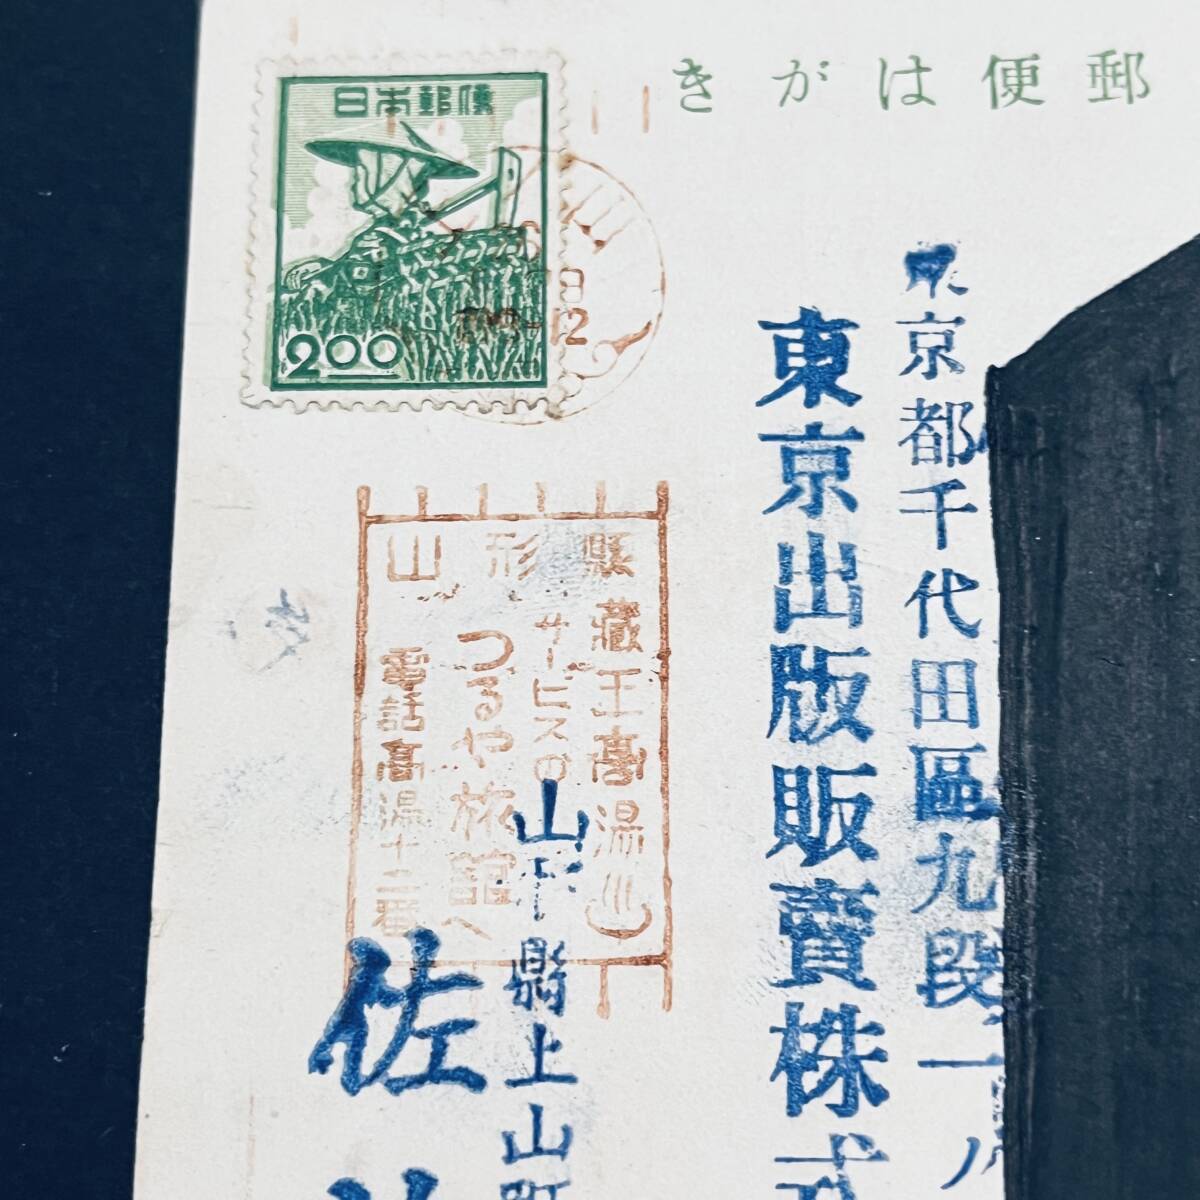 きがは便郵
日本郵便
2.00
山
26
日
-12
東京都千代田區九段一ノ
東京出版販賣株式
山形縣
藏王高湯
サービスの
つるや旅館へ
電話高湯十二番
山形縣上山町
佐